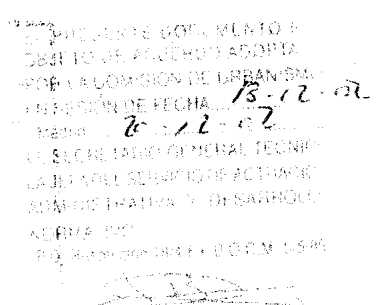 EL PRESENTE DOCUMENTO
OBJETO DE ACUERDO ADOPTA
POR LA COMISION DE URBANISM
EN SESION DE FECHA 13-12-02
20.12.02
EL SECRETARIO GENERAL TECNIC
LA JEFA DEL SERVICIO DE ACTUACIO
ADMINISTRATIVA Y DESARROLLO
NORMATIVO